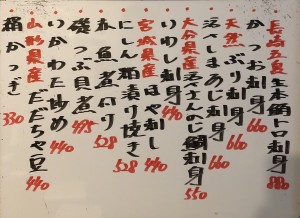 長崎五島生本鮪トロ刺身 880
かつお刺身 660
天然ぶり刺身 660
活〆しまあじ刺身 660
大分県産活〆かんのじ鯛刺身 550
いわし刺身 440
宮城県産ほや刺し 440
にしん酒漬り焼き 528
赤魚煮付 528
磯つぶ貝煮 495
いかわた炒め 440
山形県産だだちゃ豆 440
絹かつぎ 330